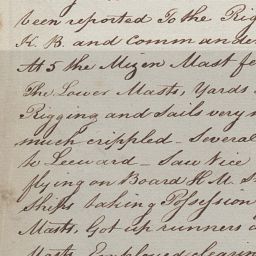 been reported To the Rig
H. B. and Commander
At 5 the Mizen Mast fe
The Lower Masts, Yards
Rigging and Sails very
much crippled - Several
to Leeward - Saw Vice
flying on Board H.M. S
Ships taking Possession
Masts, Got up runners a
Masts Employed clearin